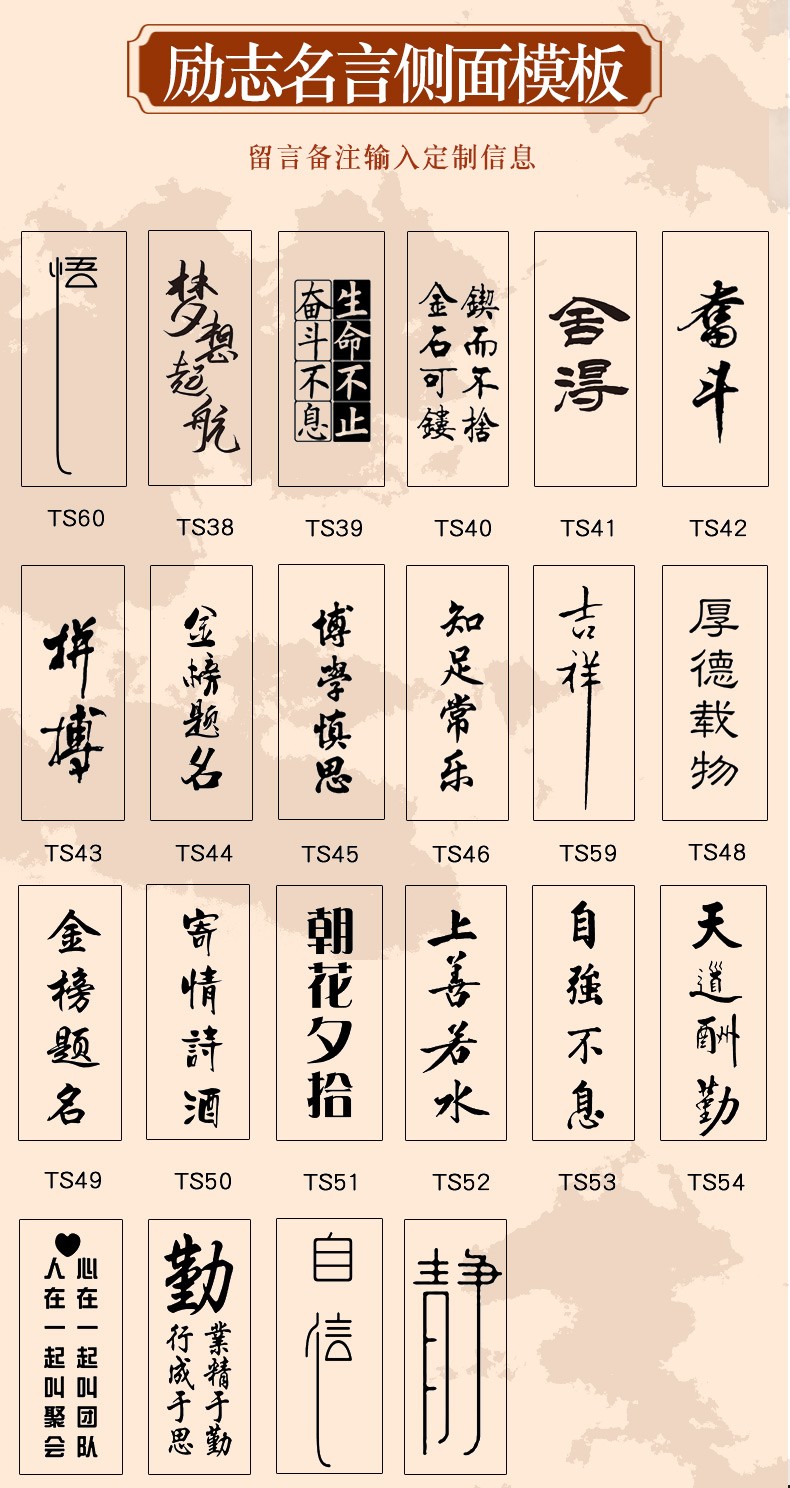 励志名言侧面模板
留言备注输入定制信息
悟
梦想起航
生命不止
奋斗不息
鍥而不捨
金石可鏤
舍得
奮斗
TS60
TS38
TS39
TS40
TS41
TS42
拼搏
金榜题名
博學慎思
知足常乐
吉祥
厚德载物
TS43
TS44
TS45
TS46
TS59
TS48
金榜题名
寄情詩酒
朝花夕拾
上善若水
自強不息
天道酬勤
TS49
TS50
TS51
TS52
TS53
TS54
人在一起叫聚会
心在一起叫团队
勤
業精于勤
行成于思
自信
静